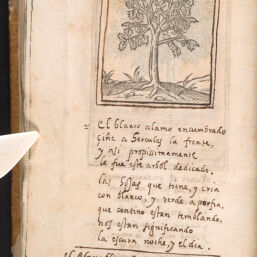 el blanco alamo encumbrado
ciñe a Hercules la frente,
y asi propissimamente
le fue este arbol dedicado.
las hojas que tiene, y cria
con blanco, y verde a porfia,
que contino estan temblando,
nos estan significando
la escura noche, y el dia.
el